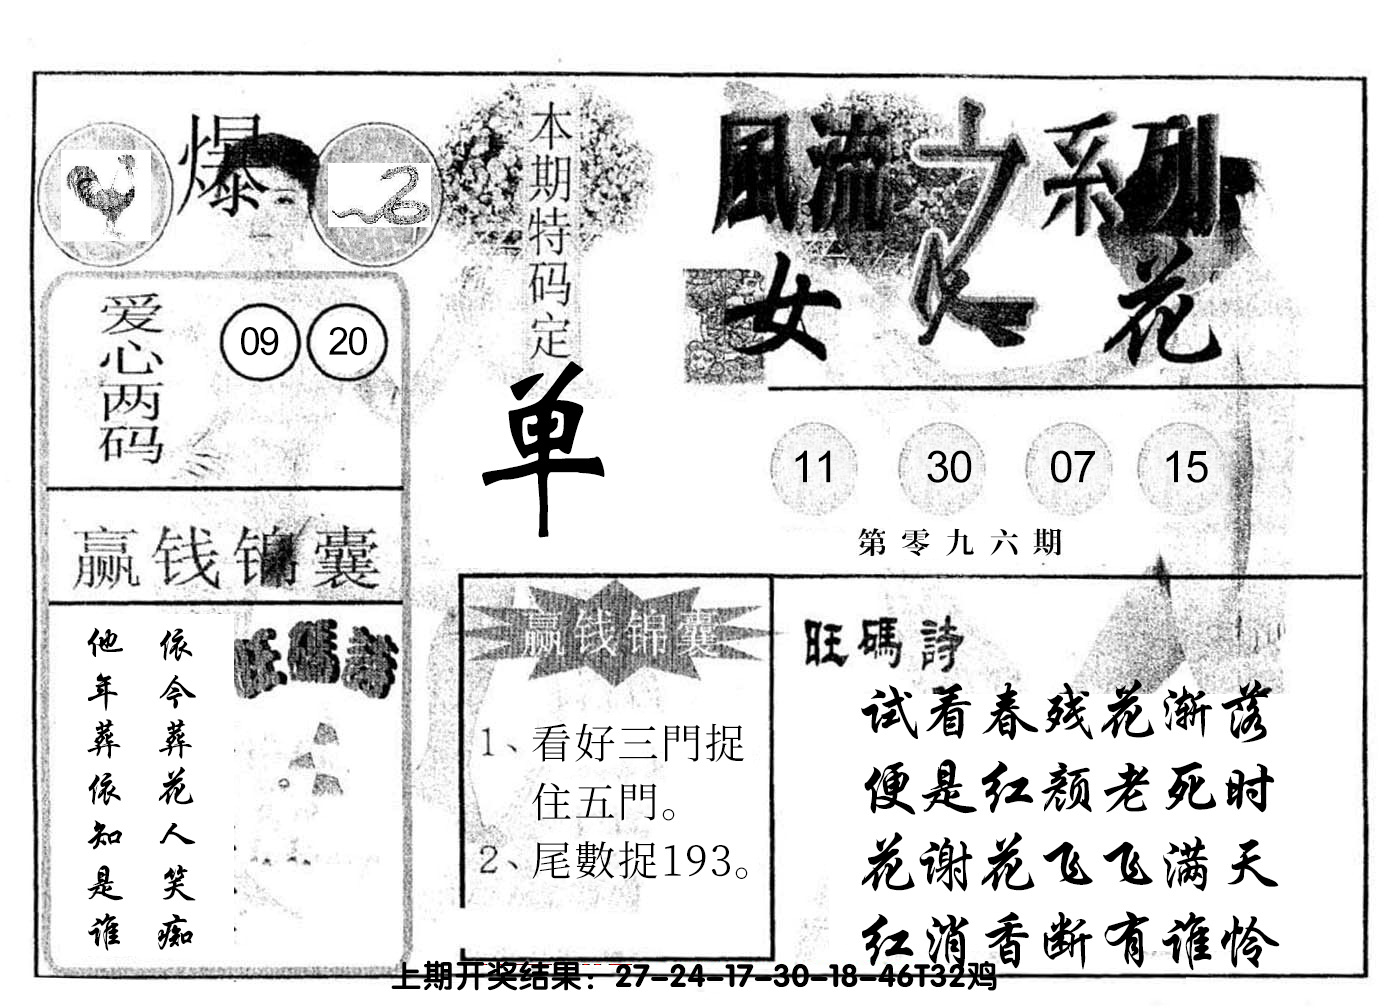 爆
本期特码定
单
風流之系列
女人花
爱心两码
09 20
11 30 07 15
第零九六期
赢钱锦囊
依今葬花人笑痴
他年葬依知是谁
旺碼詩
赢钱锦囊
1、看好三門捉
住五門。
2、尾數捉193。
旺碼詩
试看春残花渐落
便是红颜老死时
花谢花飞飞满天
红消香断有谁怜
上期开奖结果：27-24-17-30-18-46T32鸡